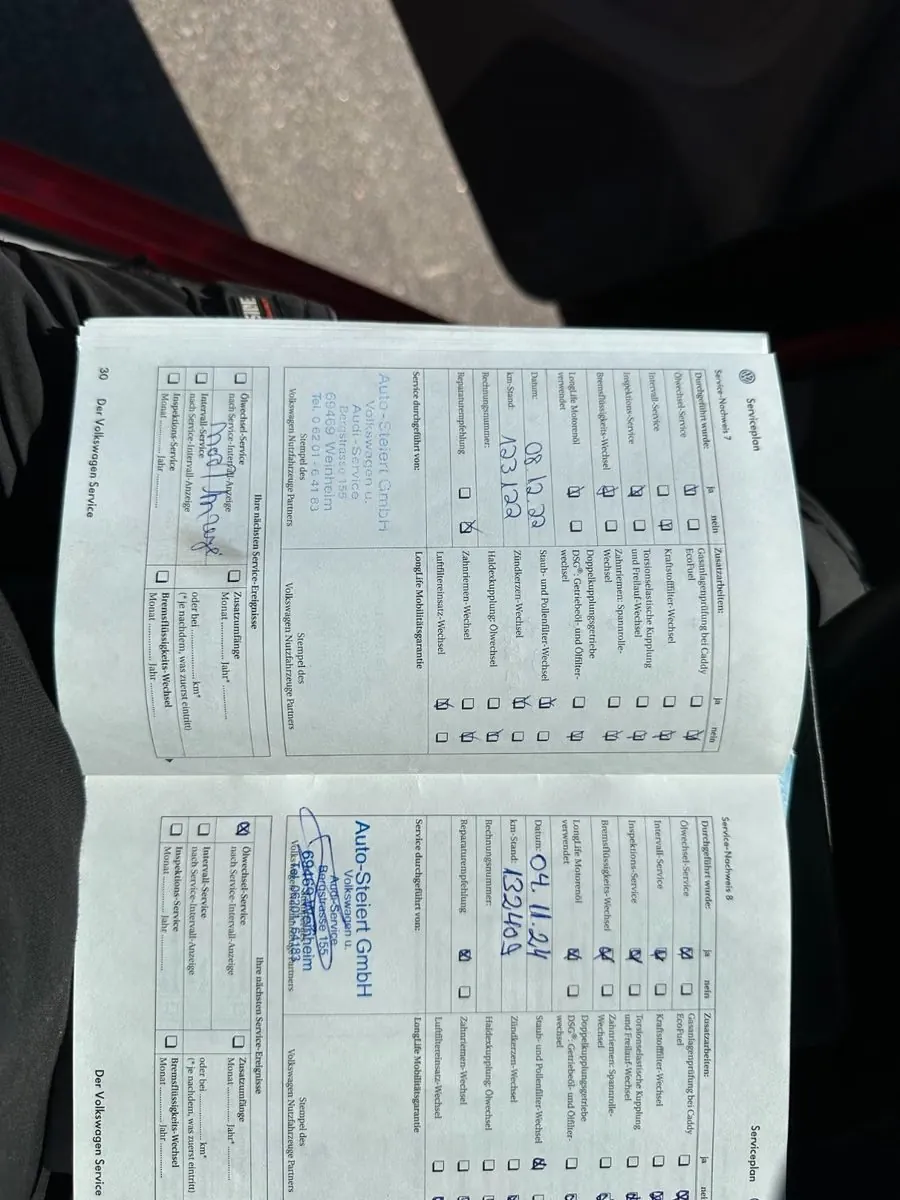 Serviceplan
Service-Nachweis 7
Durchgeführt wurde: ja nein
Ölwechsel-Service
Intervall-Service
Inspektions-Service
Bremsflüssigkeits-Wechsel
LongLife Motorenöl
verwendet
Datum: 08 12 22
km-Stand: 123122
Rechnungsnummer:
Reparaturempfehlung
Zusatzarbeiten: ja nein
Gasanlagenprüfung bei Caddy
EcoFuel
Kraftstofffilter-Wechsel
Torsionselastische Kupplung
und Freilauf-Wechsel
Zahnriemen: Spannrolle-
Wechsel
Doppelkupplungsgetriebe
DSG®: Getriebeöl- und Ölfilter-
wechsel
Staub- und Pollenfilter-Wechsel
Zündkerzen-Wechsel
Haldexkupplung: Ölwechsel
Zahnriemen-Wechsel
Luftfiltereinsatz-Wechsel
Service durchgeführt von:
Auto-Steiert GmbH
Volkswagen u.
Audi-Service
Bergstrasse 155
69469 Weinheim
Tel. 0 62 01 - 6 41 83
Stempel des
Volkswagen Nutzfahrzeuge Partners
LongLife Mobilitätsgarantie
Stempel des
Volkswagen Nutzfahrzeuge Partners
Ihre nächsten Service-Ereignisse
Ölwechsel-Service
nach Service-Intervall-Anzeige
Intervall-Service
nach Service-Intervall-Anzeige
Inspektions-Service
Monat Jahr
Zusatzumfänge
Monat Jahr*
oder bei km*
(* je nachdem, was zuerst eintritt)
Bremsflüssigkeits-Wechsel
Monat Jahr
30 Der Volkswagen Service
Serviceplan
Service-Nachweis 8
Durchgeführt wurde: ja nein
Ölwechsel-Service
Intervall-Service
Inspektions-Service
Bremsflüssigkeits-Wechsel
LongLife Motorenöl
verwendet
Datum: 04 11.24
km-Stand: 132409
Rechnungsnummer:
Reparaturempfehlung
Zusatzarbeiten: ja
Gasanlagenprüfung bei Caddy
EcoFuel
Kraftstofffilter-Wechsel
Torsionselastische Kupplung
und Freilauf-Wechsel
Zahnriemen: Spannrolle-
Wechsel
Doppelkupplungsgetriebe
DSG®: Getriebeöl- und Ölfilter-
wechsel
Staub- und Pollenfilter-Wechsel
Zündkerzen-Wechsel
Haldexkupplung: Ölwechsel
Zahnriemen-Wechsel
Luftfiltereinsatz-Wechsel
Service durchgeführt von:
Auto-Steiert GmbH
Volkswagen u.
Audi-Service
Bergstrasse 155
69469 Weinheim
Tel. 06201 - 64183
LongLife Mobilitätsgarantie
Stempel des
Volkswagen Nutzfahrzeuge Partners
Ihre nächsten Service-Ereignisse
Ölwechsel-Service
nach Service-Intervall-Anzeige
Intervall-Service
nach Service-Intervall-Anzeige
Inspektions-Service
Monat Jahr
Zusatzumfänge
Monat Jahr*
oder bei km*
(* je nachdem, was zuerst eintritt)
Bremsflüssigkeits-Wechsel
Monat Jahr
Der Volkswagen Service